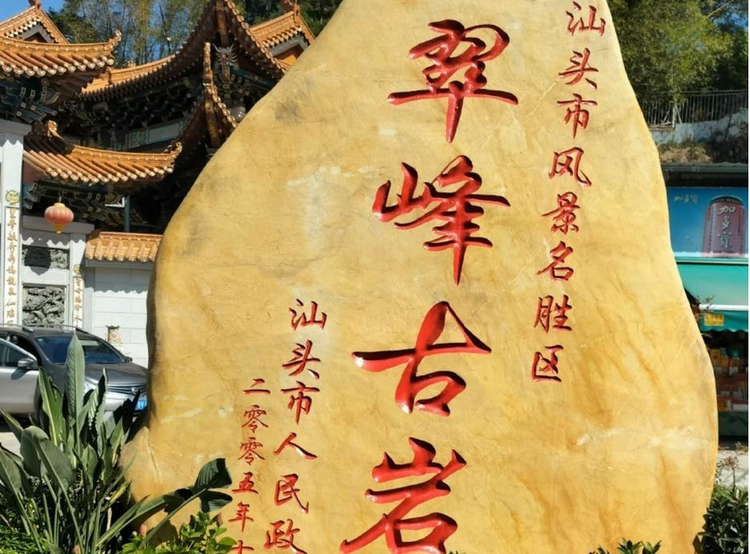 汕头市风景名胜区
翠峰古岩
汕头市人民政
二零零五年十
加多宝